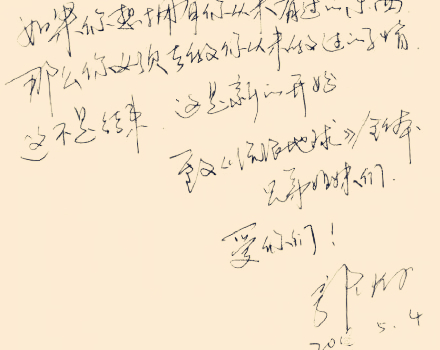 如果你想拥有你从未有过的东西
那么你必须去做你从未做过的事情
这不是结束 这是新的开始
致《流浪地球》全体
兄弟姐妹们.
爱你们！
5.4